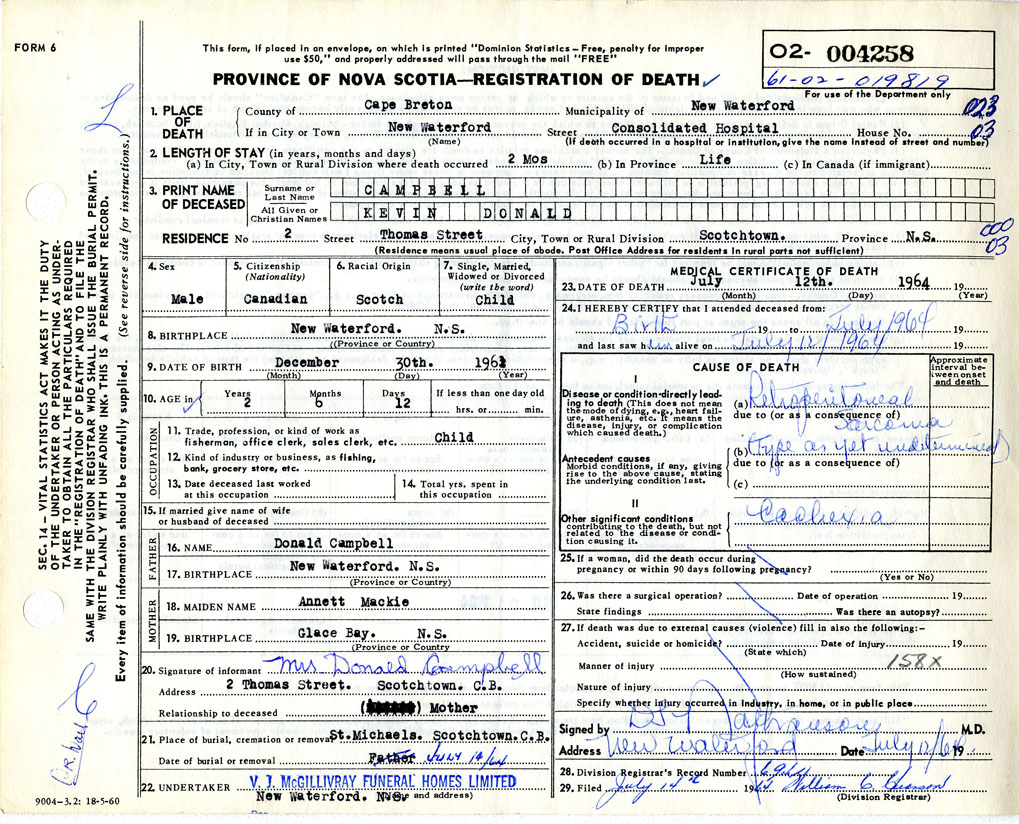 FORM 6
This form, if placed in an envelope, on which is printed "Dominion Statistics – Free, penalty for improper
use $50," and properly addressed will pass through the mail "FREE"
PROVINCE OF NOVA SCOTIA—REGISTRATION OF DEATH ✓
02- 004258
61-02-019819
For use of the Department only
1. PLACE OF DEATH
County of Cape Breton Municipality of New Waterford 023
If in City or Town New Waterford Street Consolidated Hospital House No. 03
(Name) (If death occurred in a hospital or institution, give the name instead of street and number)
2. LENGTH OF STAY (in years, months and days)
(a) In City, Town or Rural Division where death occurred 2 Mos (b) In Province Life (c) In Canada (if immigrant)
3. PRINT NAME OF DECEASED
Surname or Last Name CAMPBELL
All Given or Christian Names KEVIN DONALD
000
03
RESIDENCE No 2 Street Thomas Street City, Town or Rural Division Scotchtown. Province N.S.
(Residence means usual place of abode. Post Office Address for residents in rural parts not sufficient)
4. Sex
Male
5. Citizenship
(Nationality)
Canadian
6. Racial Origin
Scotch
7. Single, Married,
Widowed or Divorced
(write the word)
Child
8. BIRTHPLACE New Waterford. N.S.
(Province or Country)
9. DATE OF BIRTH December 30th. 1961
(Month) (Day) (Year)
10. AGE in
Years 2
Months 6
Days 12
If less than one day old
hrs. or min.
OCCUPATION
11. Trade, profession, or kind of work as
fisherman, office clerk, sales clerk, etc. Child
12. Kind of industry or business, as fishing,
bank, grocery store, etc.
13. Date deceased last worked
at this occupation
14. Total yrs. spent in
this occupation
15. If married give name of wife
or husband of deceased
FATHER
16. NAME Donald Campbell
17. BIRTHPLACE New Waterford. N.S.
(Province or Country)
MOTHER
18. MAIDEN NAME Annett Mackie
19. BIRTHPLACE Glace Bay. N.S.
(Province or Country)
20. Signature of informant Mrs Donald Campbell
Address 2 Thomas Street. Scotchtown. C.B.
Relationship to deceased Mother
21. Place of burial, cremation or removal St.Michaels. Scotchtown.C.B.
Date of burial or removal Father July 14/64
22. UNDERTAKER V. J. McGILLIVRAY FUNERAL HOMES LIMITED
New Waterford. N.S. and address)
9004-3.2: 18-5-60
MEDICAL CERTIFICATE OF DEATH
23. DATE OF DEATH July 12th. 1964 19
(Month) (Day) (Year)
24. I HEREBY CERTIFY that I attended deceased from:
Birth 19 to July 1964 19
and last saw him alive on July 12/1964 19
CAUSE OF DEATH
Approximate
interval be-
tween onset
and death
I
Disease or condition directly lead-
ing to death (This does not mean
the mode of dying, e.g., heart fail-
ure, asthenia, etc. It means the
disease, injury, or complication
which caused death.)
(a) Retroperitoneal
due to (or as a consequence of)
Sarcoma
Antecedent causes
Morbid conditions, if any, giving
rise to the above cause, stating
the underlying condition last.
(b) (type as yet undetermined)
due to (or as a consequence of)
(c)
II
Other significant conditions
contributing to the death, but not
related to the disease or condi-
tion causing it.
Cachexia
25. If a woman, did the death occur during
pregnancy or within 90 days following pregnancy?
(Yes or No)
26. Was there a surgical operation? Date of operation 19
State findings Was there an autopsy?
27. If death was due to external causes (violence) fill in also the following:–
Accident, suicide or homicide? Date of injury 19
(State which)
Manner of injury 158X
(How sustained)
Nature of injury
Specify whether injury occurred in industry, in home, or in public place
Signed by Nathanson M.D.
Address New Waterford Date July 12/64 19
28. Division Registrar's Record Number
29. Filed July 14th 1964 William C Chiasson
(Division Registrar)
SEC. 14 – VITAL STATISTICS ACT MAKES IT THE DUTY
OF THE UNDERTAKER OR PERSON ACTING AS UNDER-
TAKER TO OBTAIN ALL THE PARTICULARS REQUIRED
IN THE "REGISTRATION OF DEATH" AND TO FILE THE
SAME WITH THE DIVISION REGISTRAR WHO SHALL ISSUE THE BURIAL PERMIT.
WRITE PLAINLY WITH UNFADING INK. THIS IS A PERMANENT RECORD.
Every item of information should be carefully supplied. (See reverse side for instructions.)